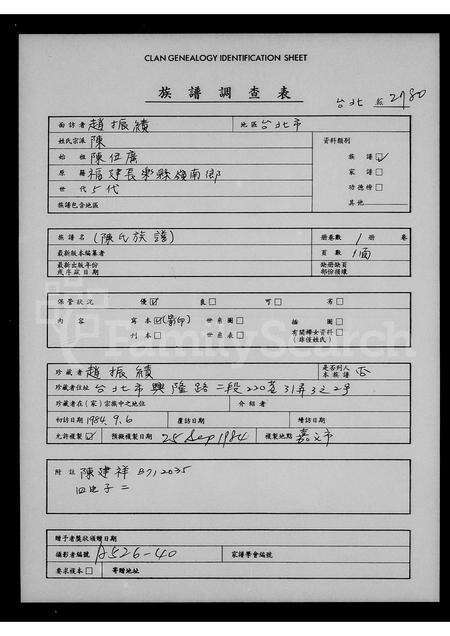 CLAN GENEALOGY IDENTIFICATION SHEET
族譜調查表
台北 2780
面訪者 趙振績 地區 台北市
姓氏宗派 陳 資料類別
始祖 陳伍廣 族譜☑
原籍 福建長樂縣嶺南鄉 家譜□
世代 5代 功德榜□
族譜包含地區 其他
族譜名 (陳氏族譜) 冊卷數 1冊 卷
最新版本編纂者 頁數 1面
最新出版年份或序跋日期 缺冊缺頁部份損壞
保管狀況 優☑ 良□ 可□ 劣□
內容 寫本☑(影印) 世系圖□ 插圖□
刊本□ 世系表□ 有關婦女資料□(非僅姓氏)
珍藏者 趙振績 是否列入本族譜 否
珍藏者住址 台北市興隆路二段220巷31弄3之2号
珍藏者在(家)宗族中之地位 介紹者
初訪日期 1984.9.6 覆訪日期 續訪日期
允許複製☑ 預擬複製日期 25 Sep 1984 複製地點 嘉义市
附註 陳建祥 B712035
四也子二
贈予者獎狀頒贈日期
攝影者編號 A526-40 家譜學會編號
要求複本□ 寄贈地址
FamilySearch